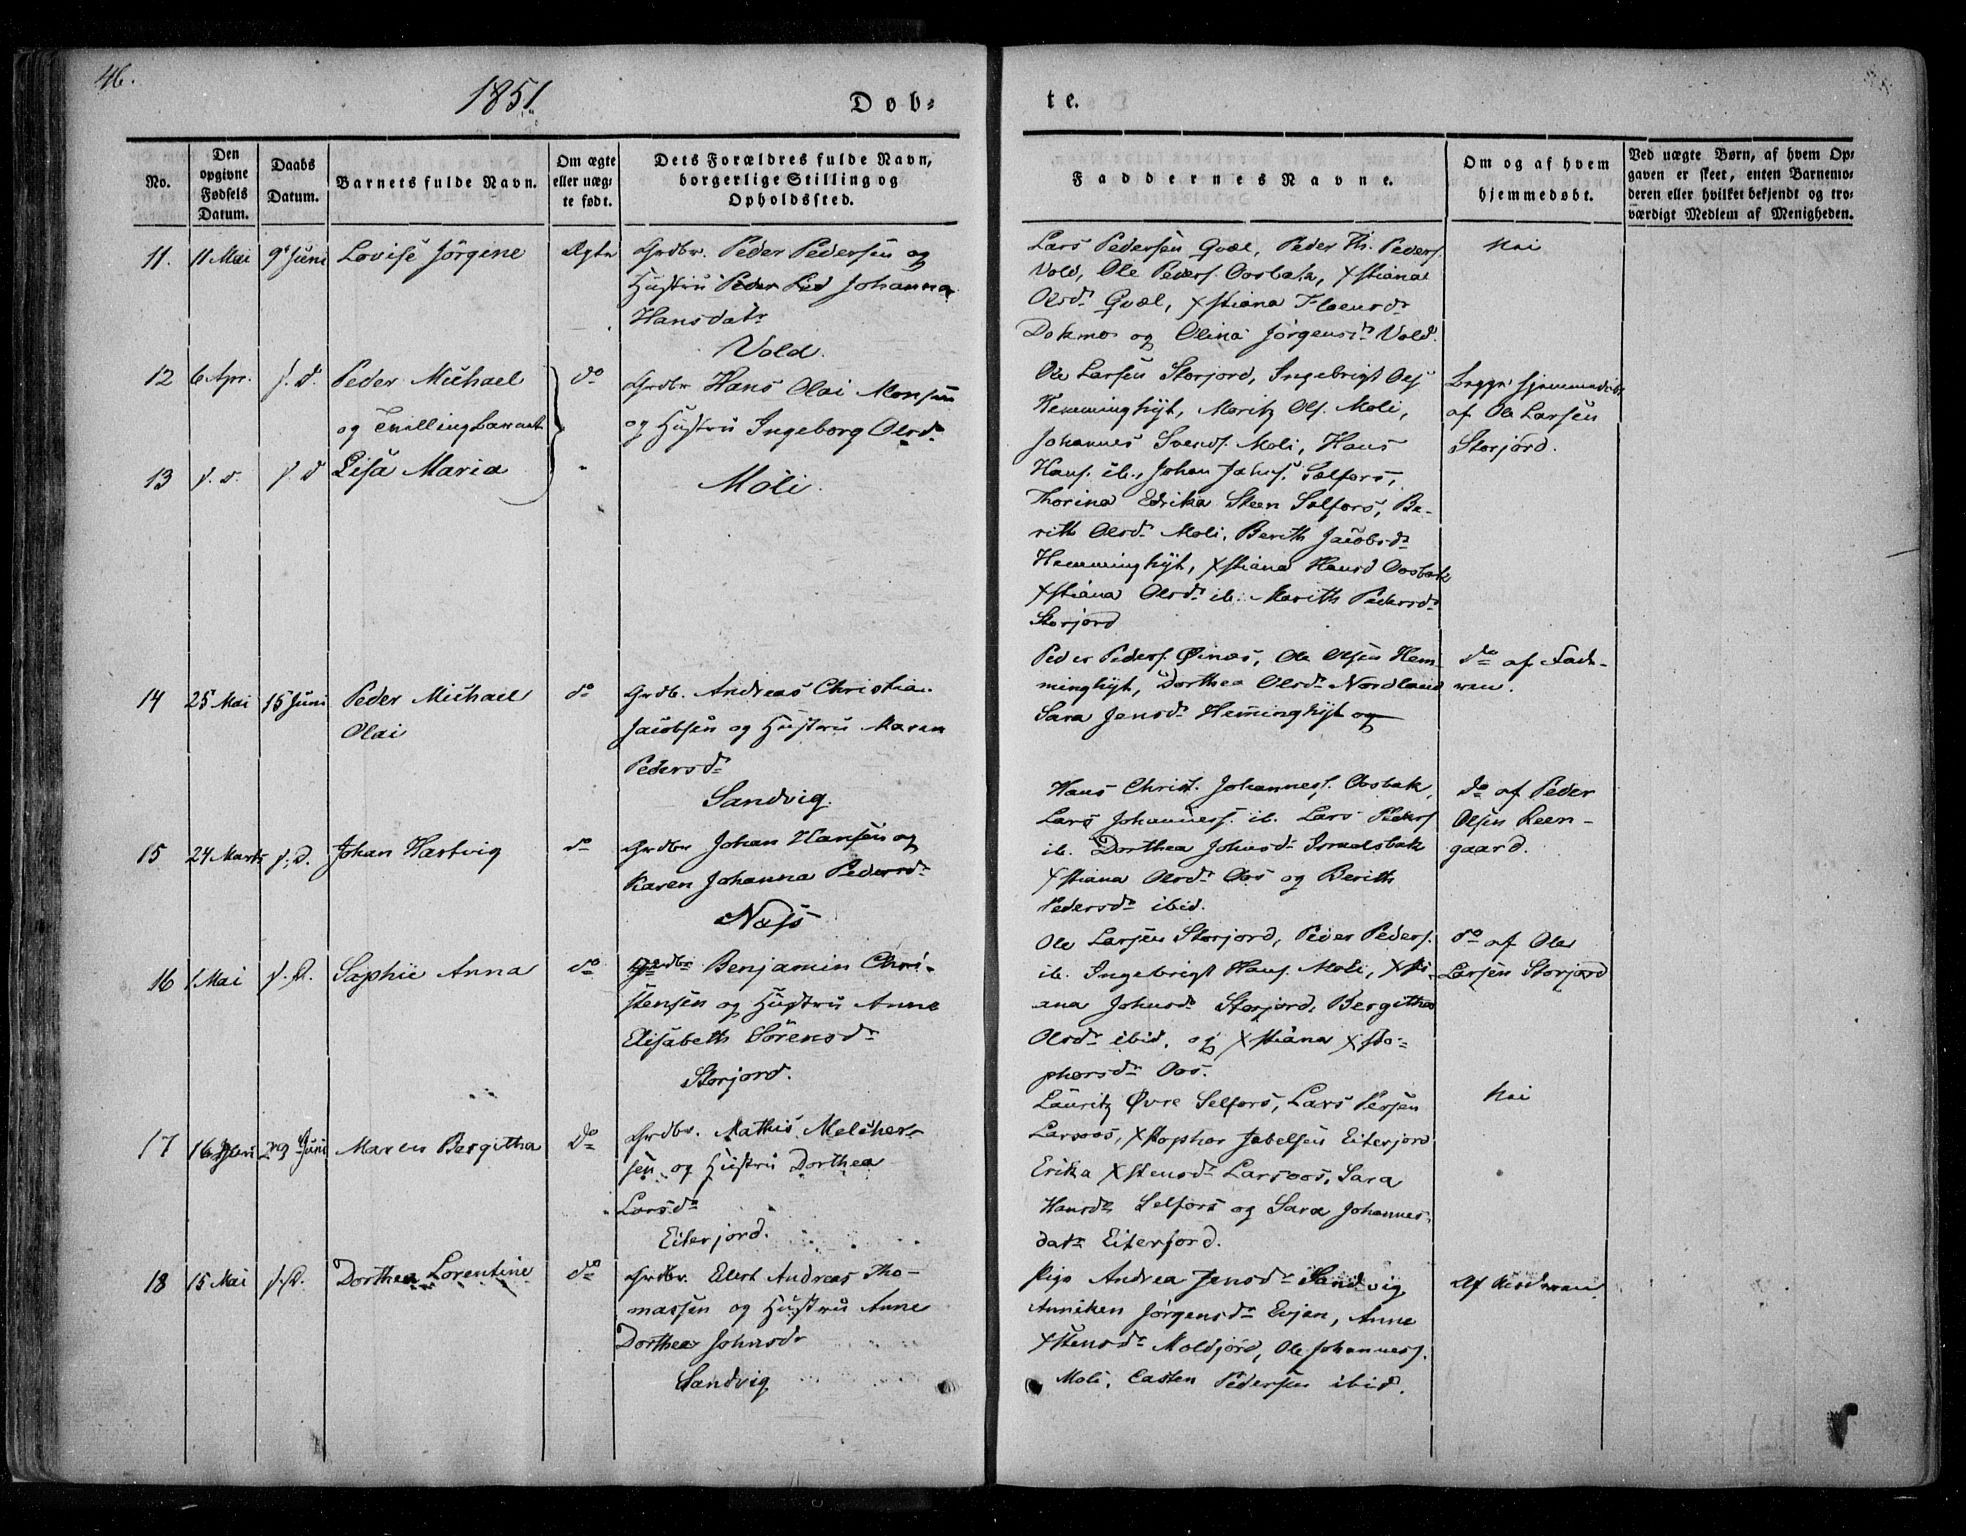 46.
1851
Døb-
te.
No.
Den opgivne Fødsels Datum.
Daabs Datum.
Barnets fulde Navn.
Om ægte eller uæg-
te født.
Dets Forældres fulde Navn,
borgerlige Stilling og
Opholdssted.
Faddernes Navne.
Om og af hvem
hjemmedøbt.
Ved uægte Børn, af hvem Op-
gaven er skeet, enten Barnemo-
deren eller hvilket bekjendt og tro-
værdigt Medlem af Menigheden.
11. 11 Mai 9de Juni Lovise Jørgene Ægte
Grdbr. Peder Pedersen og
Hustru Johanna
Hansdatr
Vold.
Lars Pedersen Qvæl, Peder Th. Peders.
Vold, Ole Peders. Oosbak, Xstiana
Olsdr Qvæl, Xstiana
Dokmo og Olina Jørgensdr Vold.
Nei
12 6 Apr. s. d. Peder Michael do
og Tvilling barnet
13 s. d. s. d Lisa Maria "
Grdbr Hans Olai Monsen
og Hustru Ingeborg Olsdr
Moli.
Ole Larsen Storjord, Ingebrigt Ols
Hemminghyt, Moritz Ols. Moli,
Johannes Svends. Moli, Hans
Hans. ib., Johan Selfors,
Thorina Edrika Steen Selfors, Be-
rith Olsdr Moli, Berith Jacobsdr
Hemminghyt, Xstiana Hansd Oosbak
Xstiana Olsdr ib. Marith Pedersdr
Storjord
Begge hjemmedøbt
af Ole Larsen
Storjord.
14 25 Mai 15 Juni Peder Michael do
Olai
Grdb. Andreas Christian
Jacobsen og Hustru Maren
Pedersdr
Sandvig.
Peder Peders. Øinæs, Ole Olsen Hem-
minghyt, Dorthea Olsdr Nordland
Sara Jensdr Hemminghyt og
do af Fade-
ren.
15 24 Marts s. D. Johan Hartvig do
Grdbr Johan Hansen og
Karen Johanna Pedersdr
Næss
Hans Christ. Johannes. Oosbak,
Lars Johannes. ib. Lars Peders
ib. Dorthea Johnsdr Israelsbak
Xstiana Olsdr Oos og Berith
Pedersdr ibid.
do af Peder
Olsen Leen-
gaard.
16 1 Mai s. D. Sophie Anna do
Grdbr Benjamin Chri-
stensen og Hustru Anne
Elisabeth Sørensdr
Storjord.
Ole Larsen Storjord, Peder Peders.
ib. Ingebrigt Hans. Moli, Xsti-
ana Johnsdr Storjord, Bergitha
Olsdr ibid, og Xstiana Xsto-
phersdr Oos.
do af Ole
Larsen Storjord
17 16 29 Juni Maren Bergitha Do
Grdbr. Mathis Melcher-
sen og Hustru Dorthea
Larsdr
Eiterjord.
Lauritz Øvre Selfors, Lars Persen
Larsoos, Xstopher Jabelsen Eiterjord
Erika Xstensdr Larsoos, Sara
Hansdr Selfors og Sara Johannes-
datr Eiterjord.
Nei
18 15 Mai s. D. Dorthea Lorentine do
Grdbr. Elert Andreas Tho-
massen og Hustru Anne
Dorthea Johnsdr
Sandvig
Pige Andrea Jensdr Sandvig
Anniken Jørgensdr Evjen, Anne
Xstensdr Moldjord, Ole Johannes.
Moli, Casten Pedersen ibid.
Af